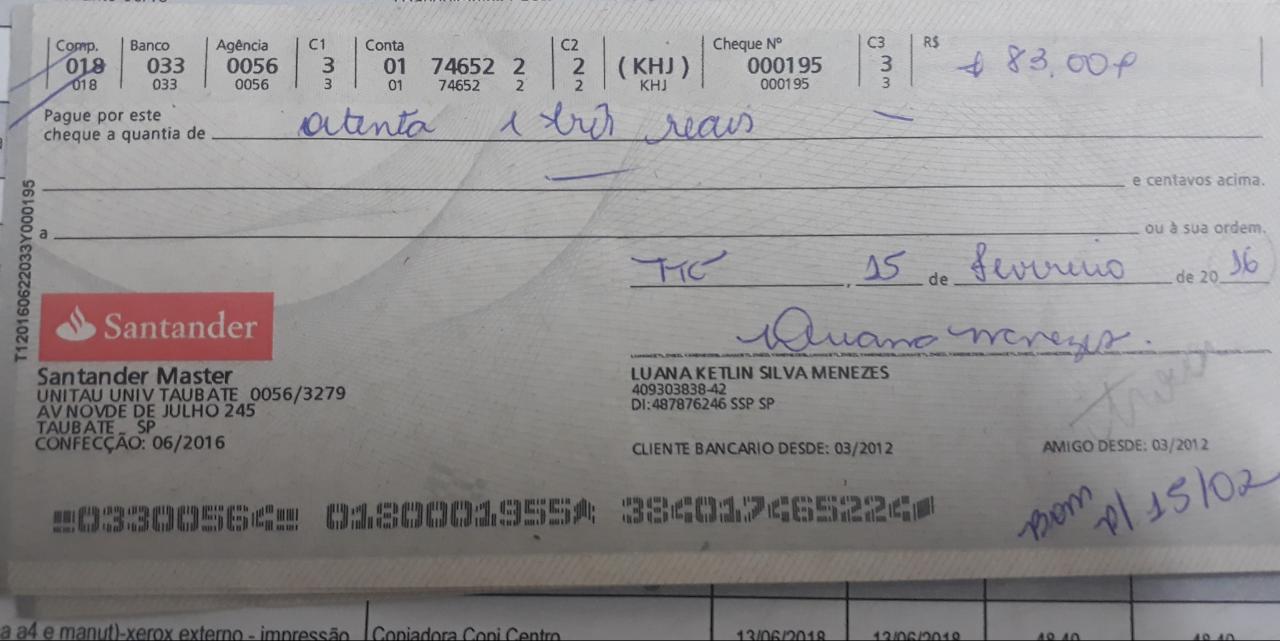 Comp. Banco Agência C1 Conta C2 Cheque Nº C3 R$
018 033 0056 3 01 74652 2 2 (KHJ) 000195 3 $ 83,00
018 033 0056 3 01 74652 2 2 KHJ 000195 3
Pague por este
cheque a quantia de oitenta e três reais
e centavos acima.
a ou à sua ordem.
15 de fevereiro de 20 16
T120160622033Y000195
Santander
Luana Menezes.
Santander Master
UNITAU UNIV TAUBATE 0056/3279
AV NOVDE DE JULHO 245
TAUBATE SP
CONFECÇÃO: 06/2016
LUANA KETLIN SILVA MENEZES
409303838-42
DI:487876246 SSP SP
CLIENTE BANCARIO DESDE: 03/2012 AMIGO DESDE: 03/2012
Bom p/ 15/02
03300564 0180001955 384017465224
a a4 e manut)-xerox externo - impressão Copiadora Copi Centro 13/06/2018 13/06/2018 48,40 48,40